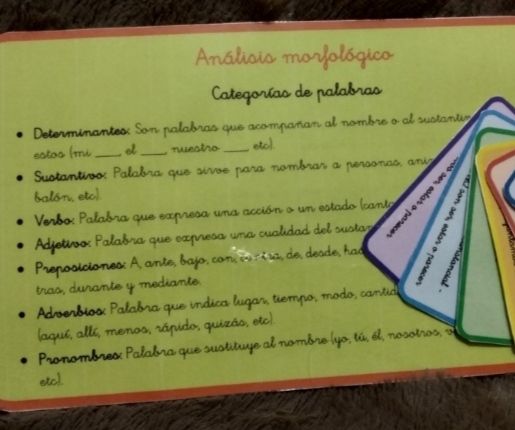 Análisis morfológico
Categorías de palabras
• Determinantes: Son palabras que acompañan al nombre o al
estos (mi ____, el ____, nuestro ____, etc).
• Sustantivos: Palabra que sirve para nombrar a personas,
balón, etc).
• Verbo: Palabra que expresa una acción o un estado
• Adjetivos: Palabra que expresa una cualidad del
• Preposiciones: A, ante, bajo, con, de, desde,
tras, durante y mediante.
• Adverbios: Palabra que indica lugar, tiempo, modo,
(aquí, allí, menos, rápido, quizás, etc).
• Pronombres: Palabra que sustituye al nombre (yo, tú, él, nosotros,
etc).
ser, estar o parecer
ser, estar o parecer